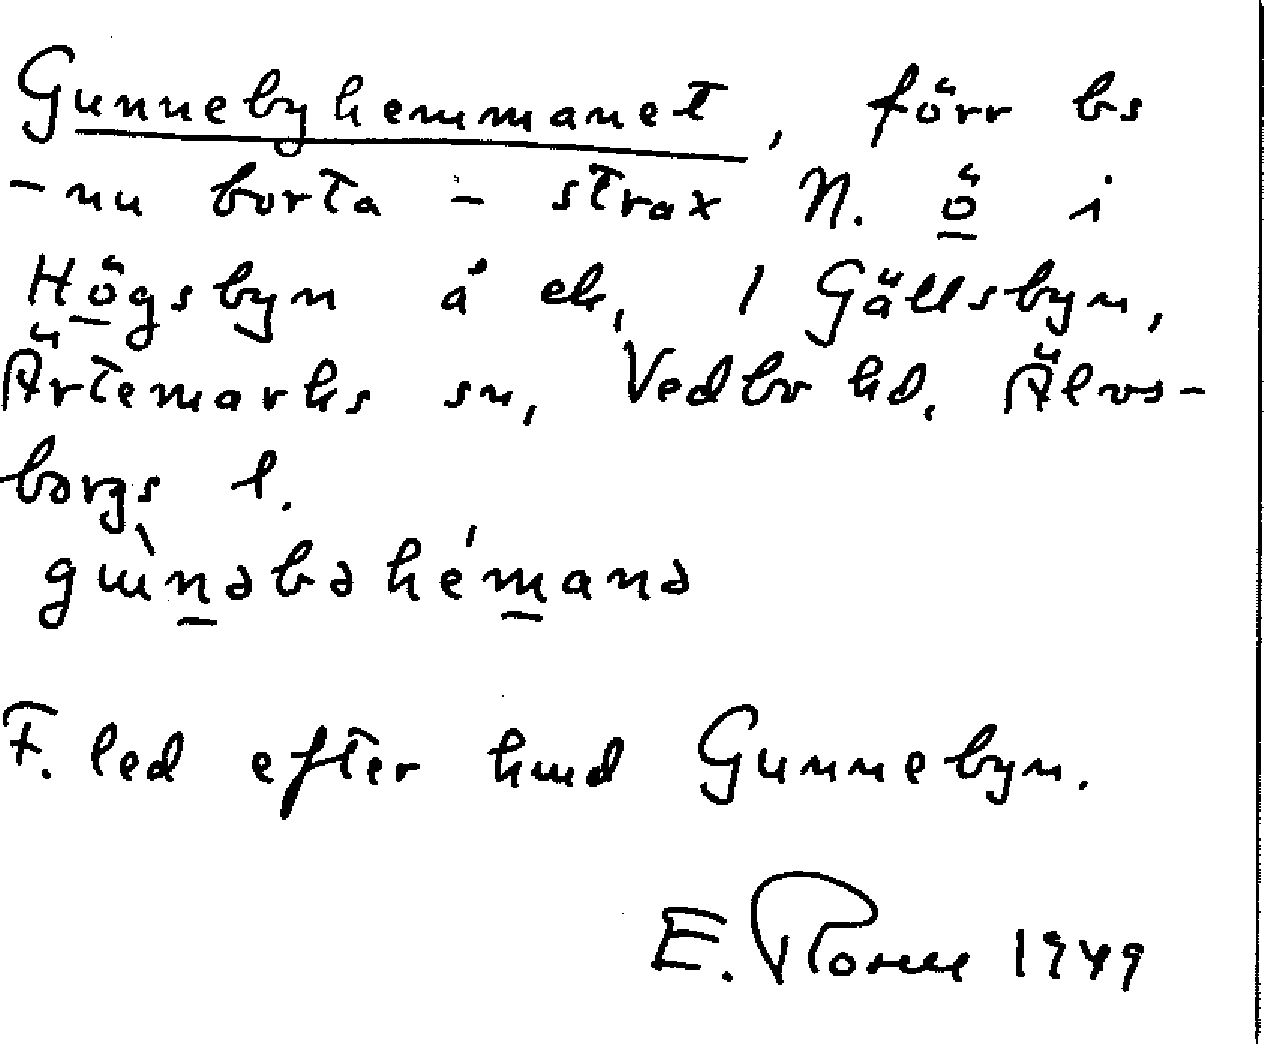 Gunnebyhemmanet, förr bs
- nu borta - strax N. ö i
Högsbyn å ek, 1 Gällsbyn,
Ärtemarks sn, Vedbo hd, Älvs-
borgs l.
F. led efter hmd Gunnebyn.
E. 1949